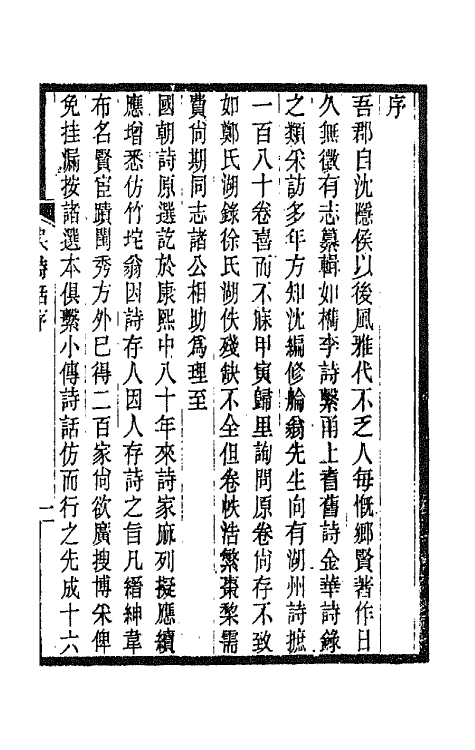 序
吾郡自沈隱侯以後風雅代不乏人每慨鄉賢著作日
久無徵有志纂輯如檇李詩繫甬上耆舊詩金華詩錄
之類采訪多年方知沈編修舲翁先生向有湖州詩摭
一百八十卷喜而不寐甲寅歸里詢問原卷尙存不致
如鄭氏湖錄徐氏湖佚殘缺不全但卷帙浩繁棗棃需
費尙期同志諸公相助爲理至
國朝詩原選訖於康熙中八十年來詩家麻列擬應續
應增悉仿竹垞翁因詩存人因人存詩之旨凡縉紳韋
布名賢宦蹟閨秀方外已得二百家尙欲廣搜博采俾
免挂漏按諸選本俱繫小傳詩話仿而行之先成十六
詩話序
一